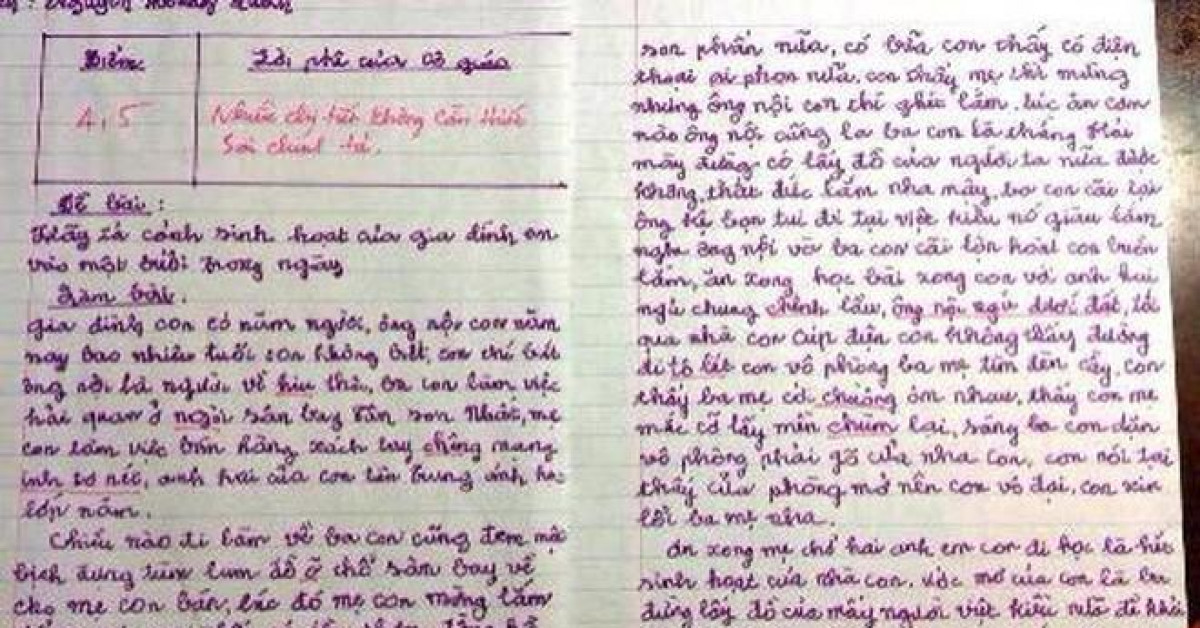 Nguyễn Hoàng Quân
Điểm
Lời phê của Cô giáo
4,5
Nhiều chi tiết không cần thiết
Sai chính tả.
Đề bài :
Hãy tả cảnh sinh hoạt của gia đình em
vào một buổi trong ngày
Làm bài.
gia đình con có năm người, ông nội con năm
nay bao nhiêu tuổi con không biết, con chỉ biết
ông nội là người về hiu thôi, ba con làm việc
hải quan ở ngoài sân bay tân sơn Nhất, mẹ
con làm việc bán hàng xách tay chên mạng
inh tơ nét, anh hai của con tên trung ánh học
lớp năm.
Chiều nào đi làm về ba con cũng đem một
bịch đựng tùm lum đồ ở chỗ sân bay về
cho mẹ con bán, lúc đó mẹ con mừng lắm
son phấn nữa, có bữa con thấy có điện
thoại ai phon nữa, con thấy mẹ thì mừng
nhưng ông nội con chỉ ghét lắm, lúc ăn cơm
nào ông nội cũng la ba con là thằng Hải
mầy đừng có lấy đồ của người ta nữa được
không, thất đức lắm nha mầy, ba con cãi lại
ông kệ bọn tui đi tại việt kiều nó giàu lắm
nghe ông nội và ba con cãi lộn hoài con buồn
lắm, ăn xong học bài xong con với anh hai
ngủ chung chênh lầu, ông nội ngủ dưới đất, tối
qua nhà con cúp điện con không thấy đường
đi tô lét con vô phòng ba mẹ tìm đèn cầy, con
thấy ba mẹ cỡi chuồng ôm nhau, thấy con mẹ
mắc cỡ lấy mền chùm lại, sáng ba con dặn
vô phòng phải gõ cửa nha con, con nói tại
thấy cửa phòng mở nên con vô đại, con xin
lỗi ba mẹ nha.
ăn xong mẹ chở hai anh em con đi học là hết
sinh hoạt của nhà con, ước mơ của con là ba
đừng lấy đồ của mấy người việt kiều nữa để khỏi